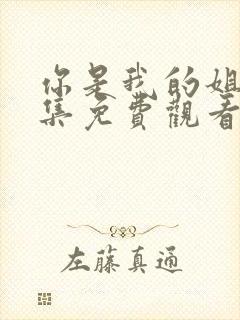 你是我的姐
集免費觀看
左藤真通